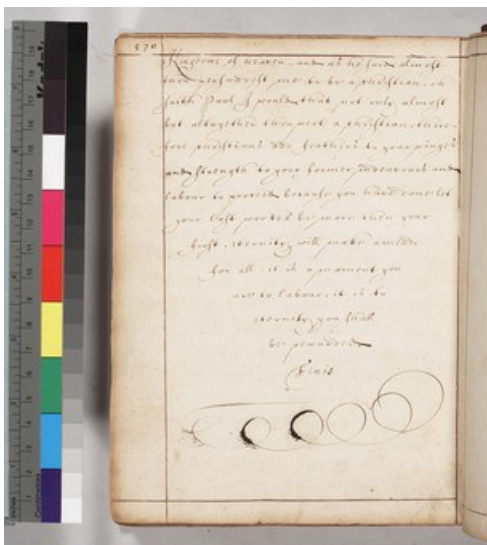 870
Kingdome of heaven. and as he said almost
thou perswadest me to be a Christian. so
saith Paul I would that not only almost
but altogether thou wert a Christian. there-
fore Christians add feathers to your winges
and strength to your former indeavours and
labour to proceed because you have
your last workes be more then your
first. eternity will make amends
for all. it is a moment you
are to labour. it is to
eternity you shall
be rewarded
Finis